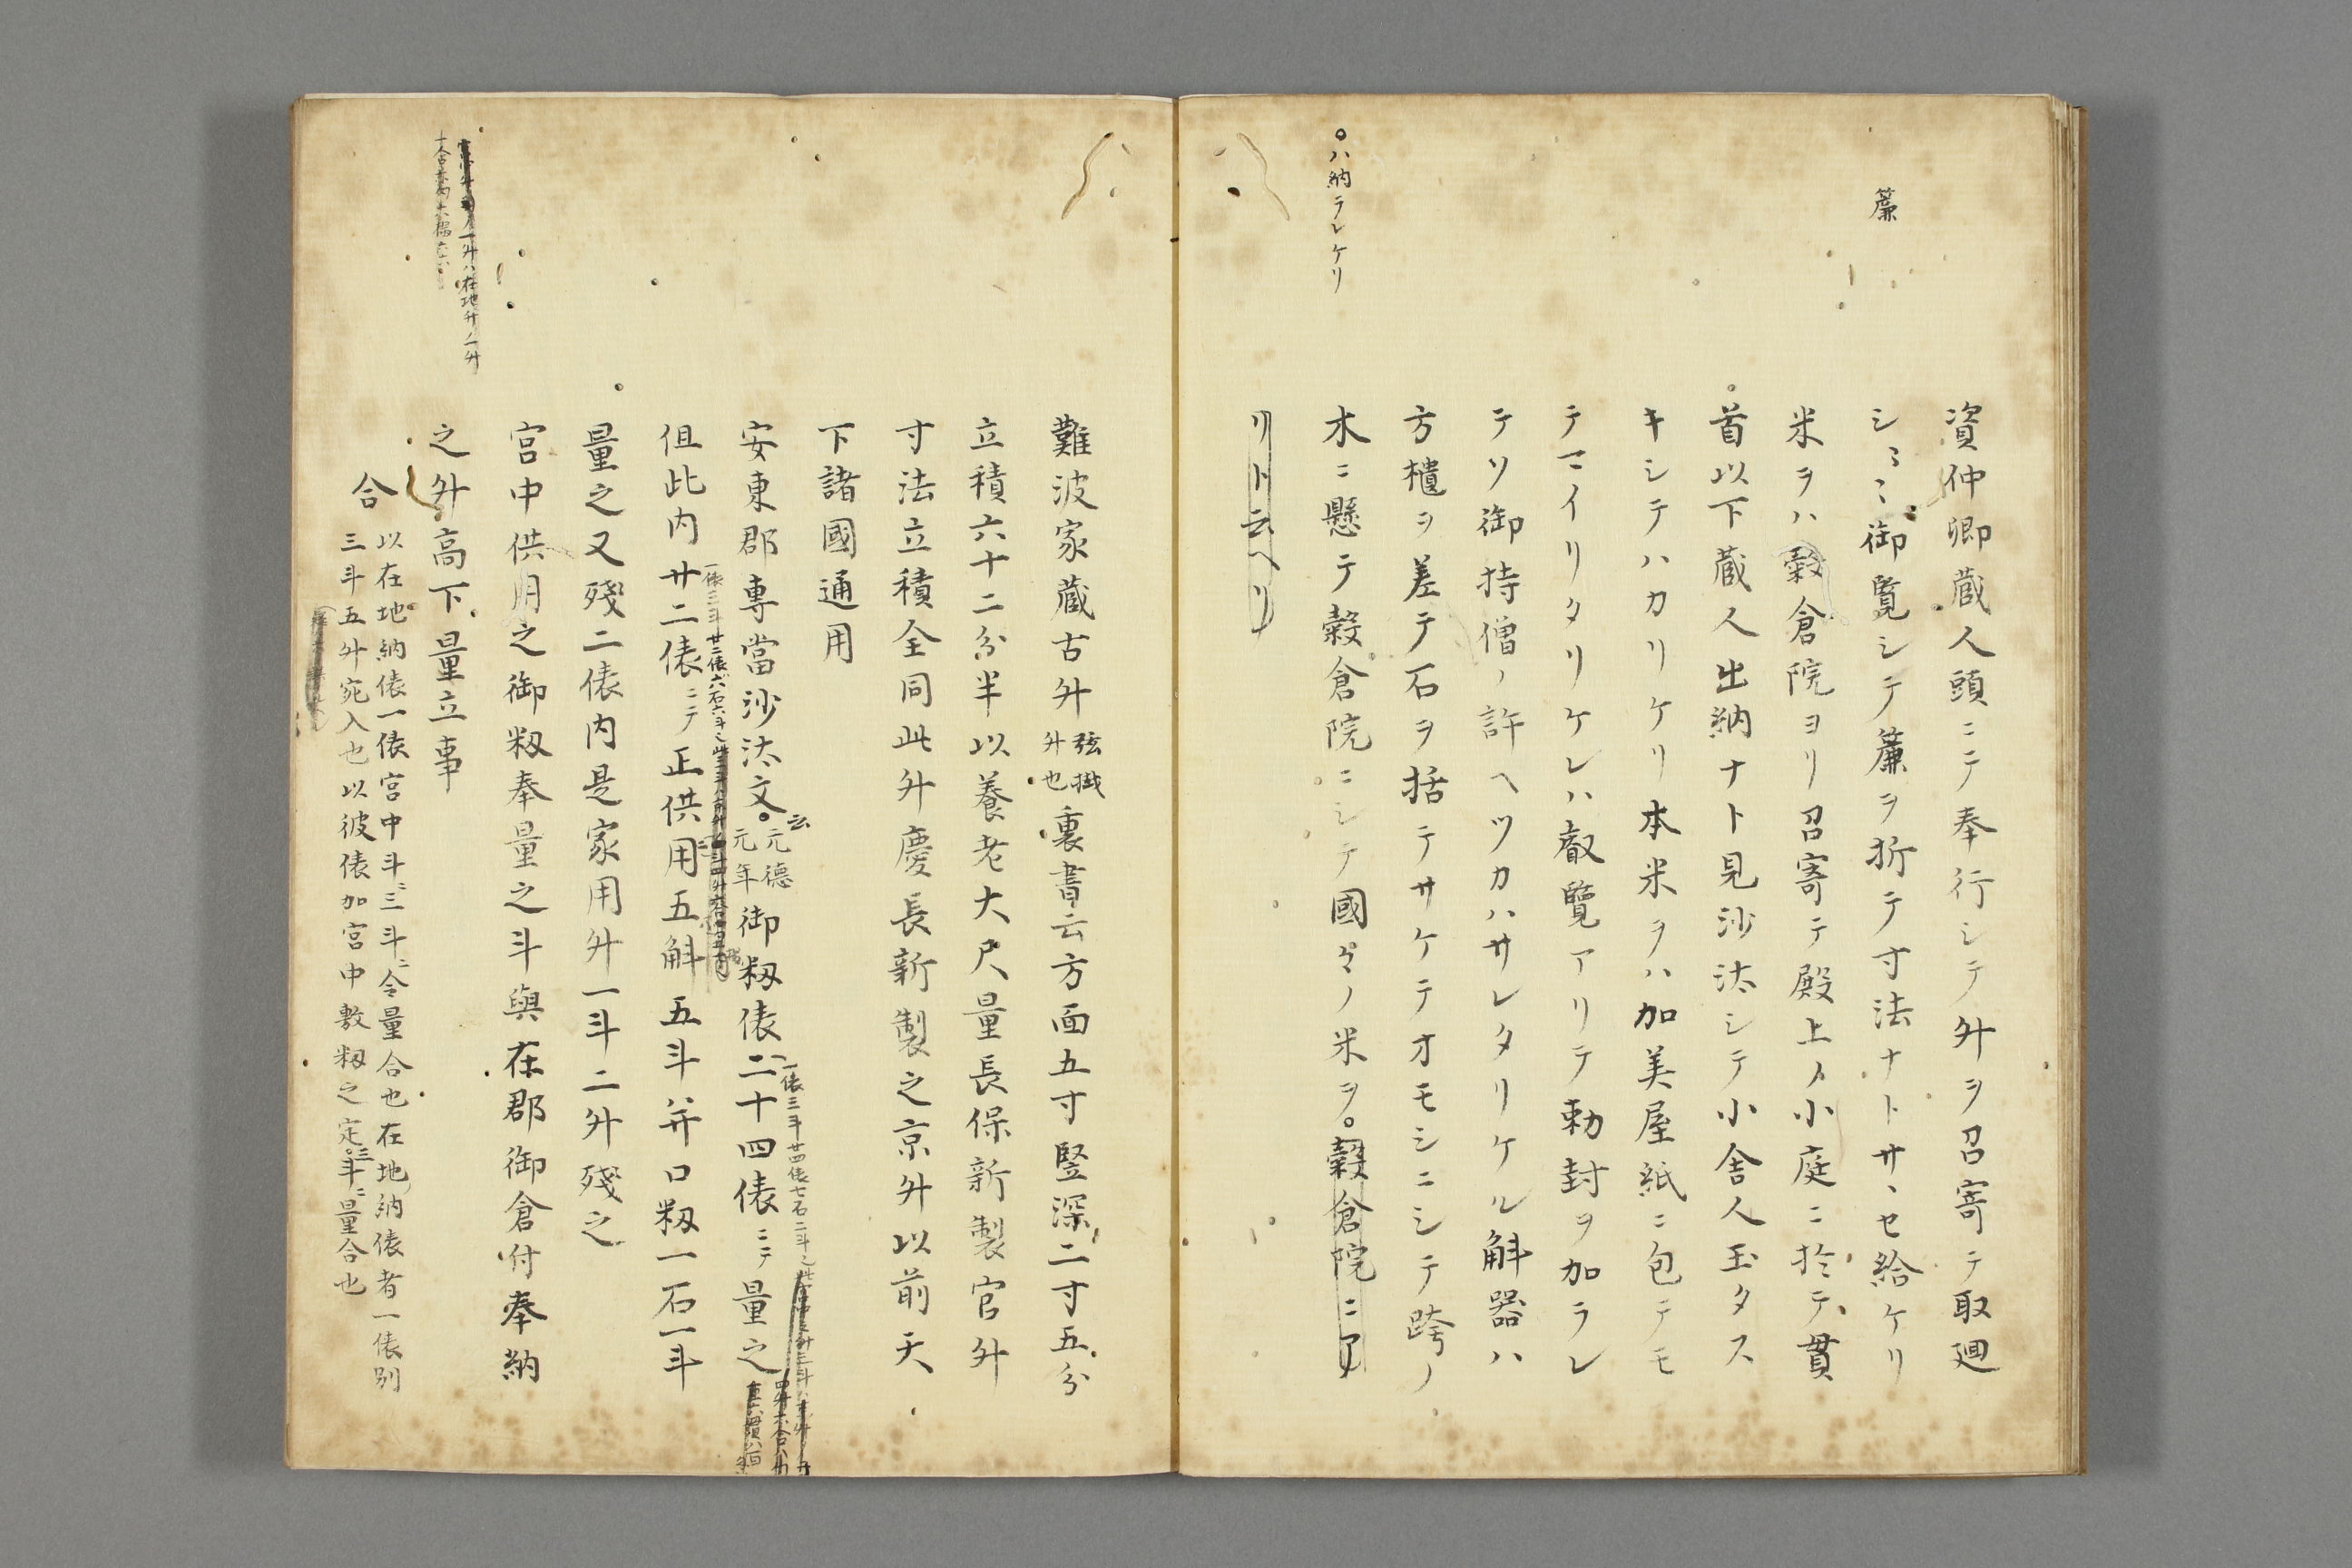 簾
○ハ納ラレケリ
資仲卿蔵人頭ニテ奉行シテ升ヲ召寄テ取廻
シミミ御覧シテ簾ヲ折テ寸法ナトサヽセ給ケリ
米ヲハ穀倉院ヨリ召寄テ殿上ノ小庭ニ於テ貫
首以下蔵人出納ナト見沙汰シテ小舎人玉タス
キシテハカリケリ本米ヲハ加美屋紙ニ包テモ
テマイリタリケレハ叡覽アリテ勅封ヲ加ラレ
テソ御持僧ノ許ヘツカハサレタリケル斛器ハ
方櫃ヲ差テ石ヲ括テサケテオモシニシテ跨ノ
木ニ懸テ穀倉院ニシテ國々ノ米ヲ○穀倉院ニア
リト云ヘリ
難波家蔵古升弦掛升也裏書云方面五寸竪深二寸五分
立積六十二分半以養老大尺量長保新製官升
寸法立積全同此升慶長新製之京升以前天
下諸國通用
安東郡專當沙汰文○云元德元年御籾俵二十四俵ニテ量之
一俵三斗廿四俵七石二斗
但此内廿二俵ニテ正供用五斛五斗并口籾一石一斗
一俵三斗廿二俵六石六斗
量之又殘二俵内是家用升一斗二升殘之
宮中供月之御籾奉量之斗與在郡御倉付奉納
之升高下量立事
合
以在地納俵一俵宮中斗ニ三斗ニ令量合也在地納俵者一俵別
三斗五升宛入也以彼俵加宮中敷籾之定三斗ニ量合也